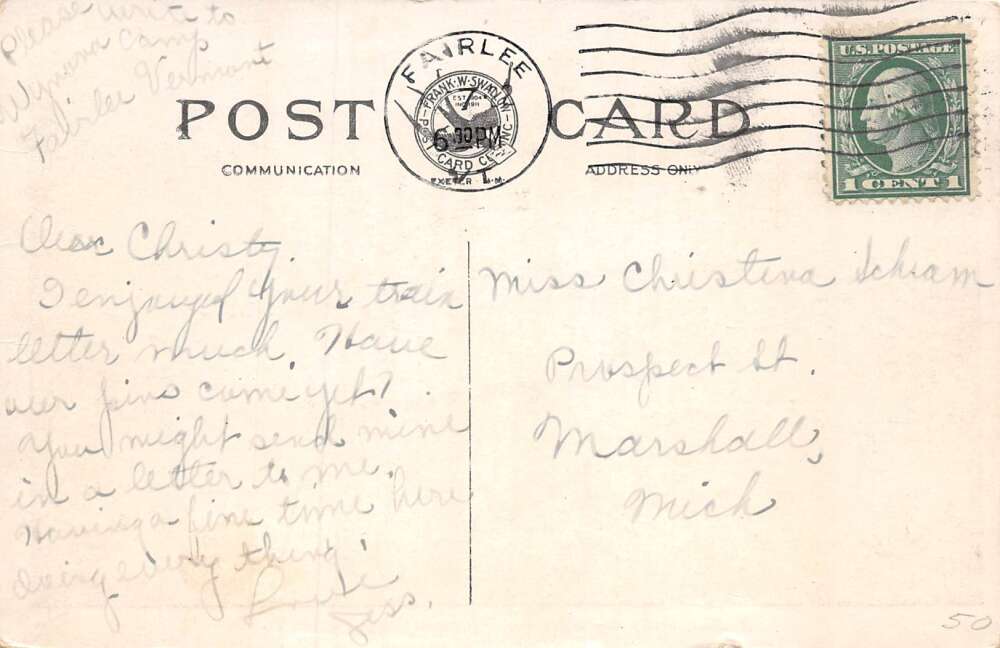 Please write to
Wynona Camp
Fairlee Vermont
FAIRLEE
6 30 PM
VT.
FRANK W. SWALLOW
POST CARD CO. INC.
EXETER N.H.
POST CARD
COMMUNICATION
ADDRESS ONLY
U.S. POSTAGE
1 CENT 1
Dear Christy.
I enjoyed your train
letter much. Have
our pins come yet?
You might send mine
in a letter to me.
Having a fine time here
doing every thing.
Love
Jess.
Miss Christena Schram
Prospect St.
Marshall,
Mich
50